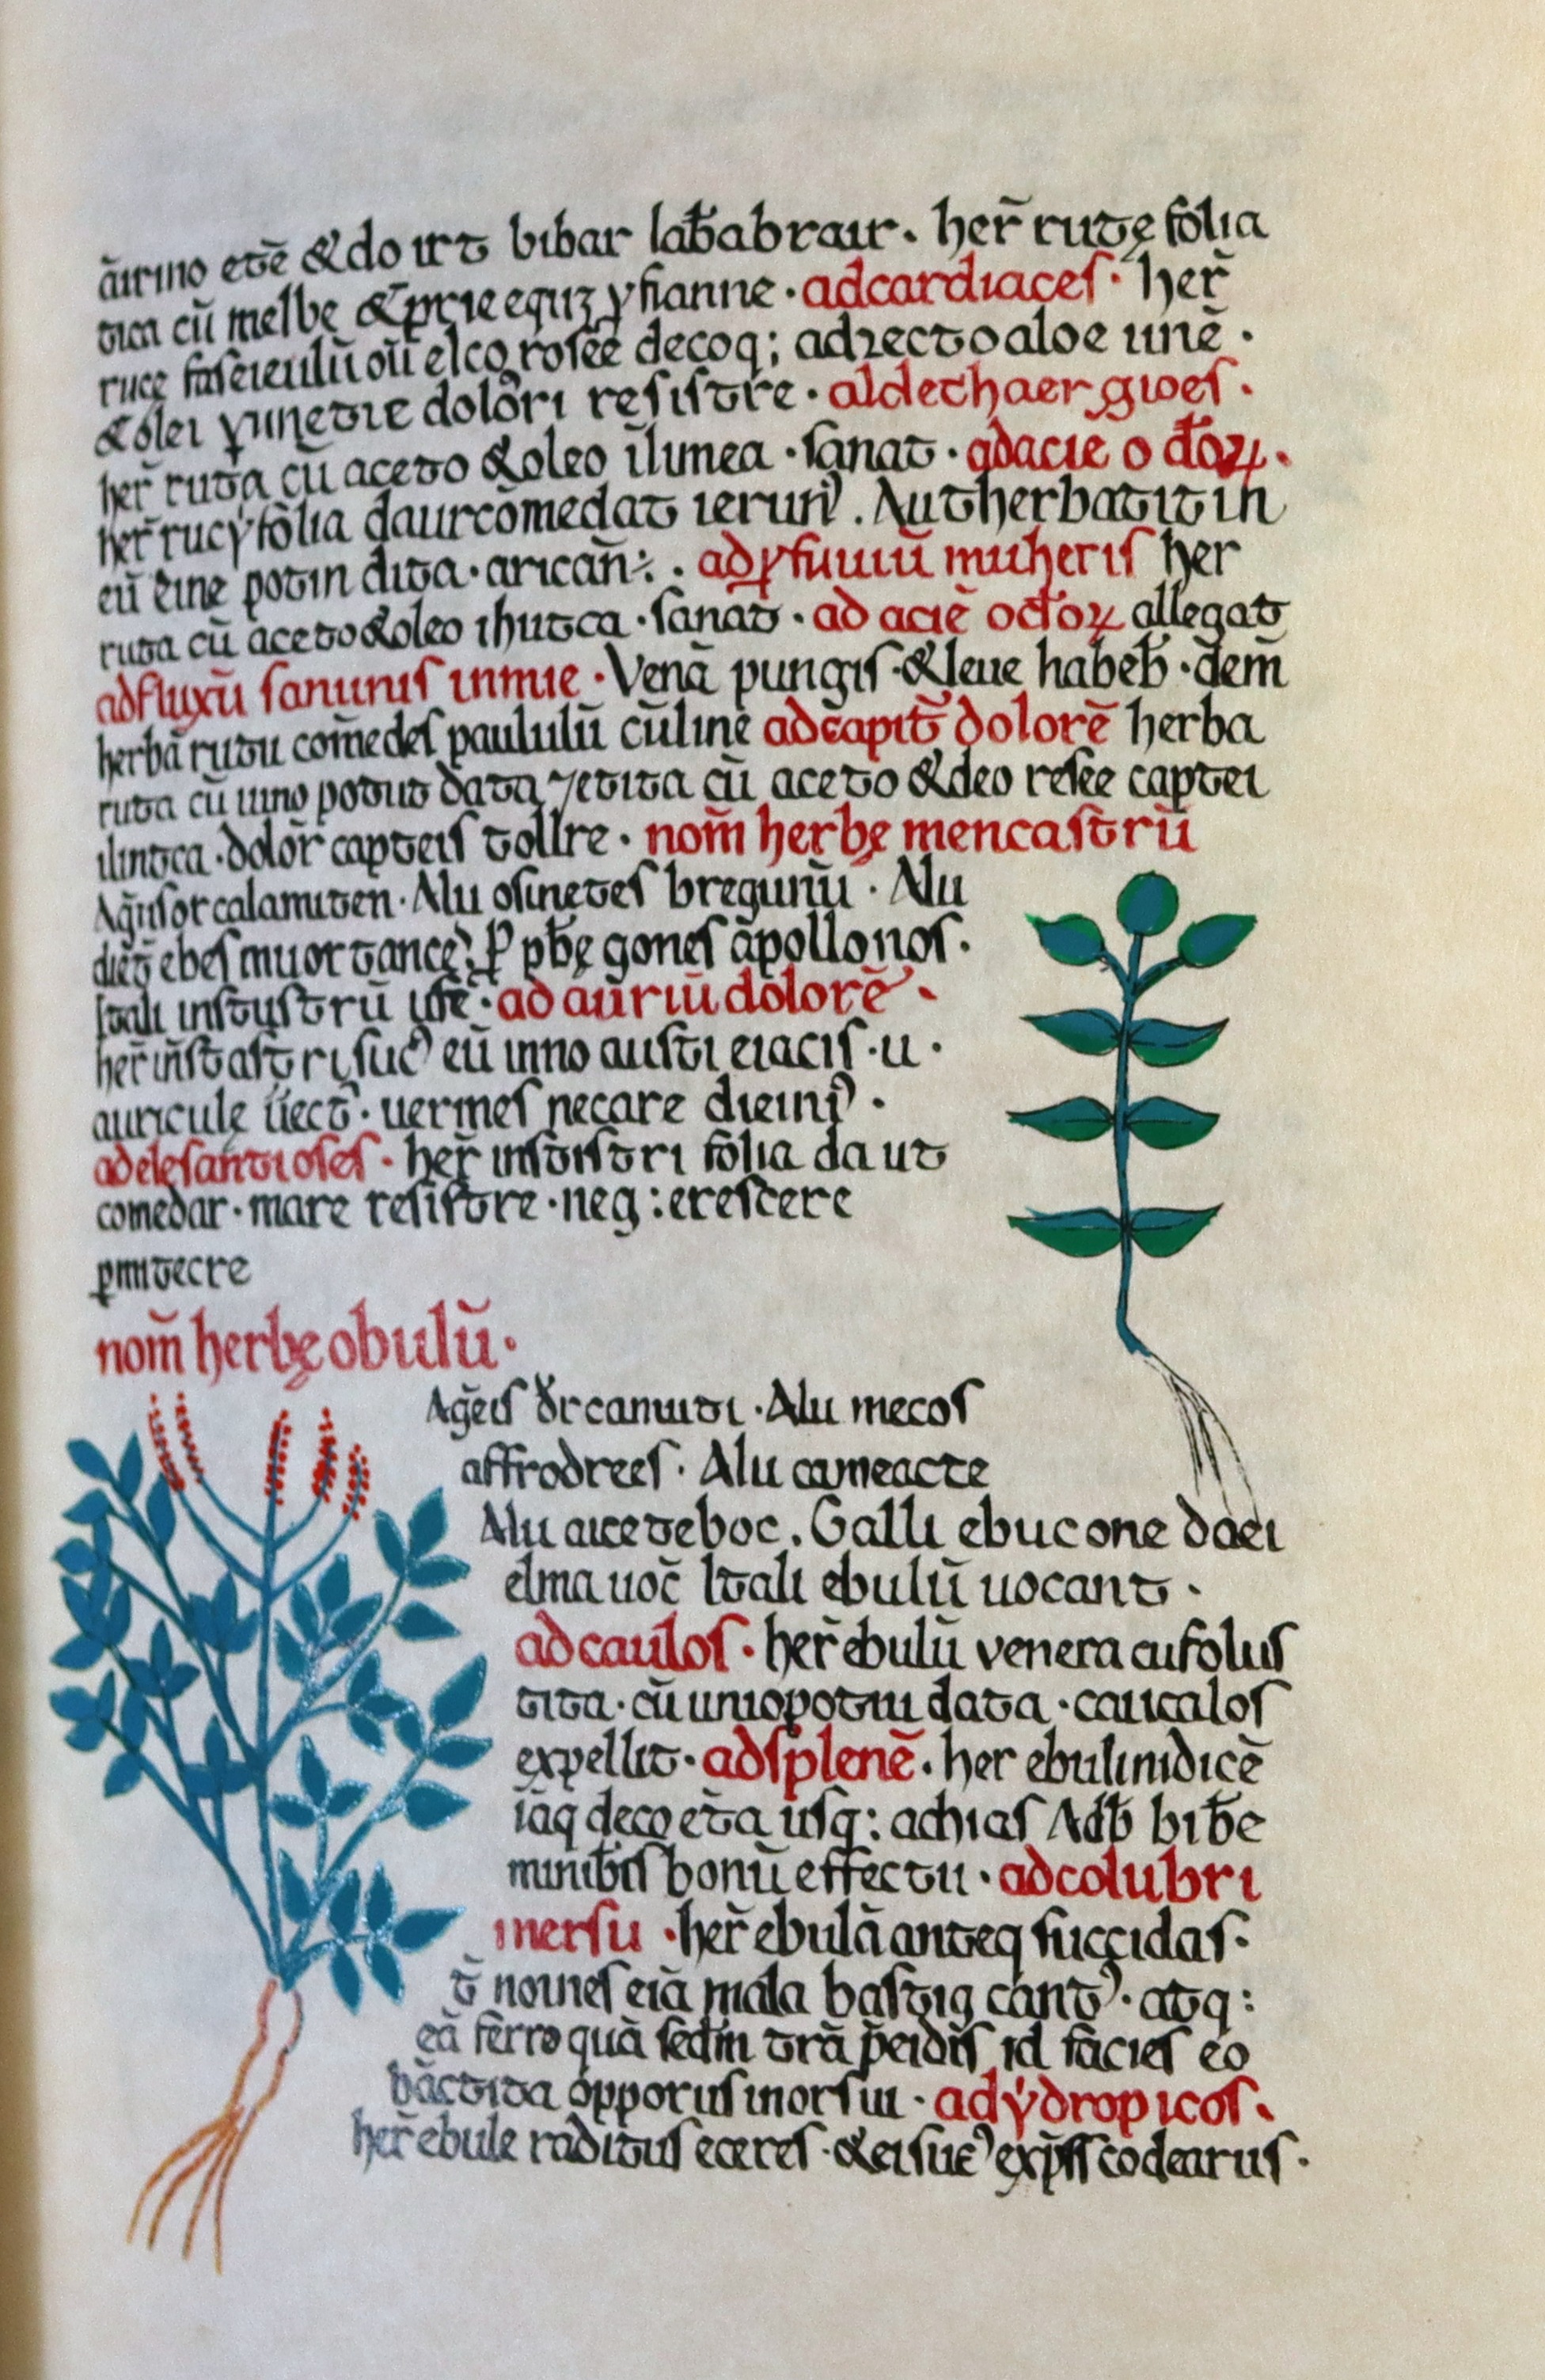 ãirino etē &do irt bibar lab̄abrair. her̄ rutę folia
tica cū melbe &prie equz yfianne · adcardiaces · her̄
ruce fasciculū oū elco rosēe decoq; adrecto aloe unē ·
&olei yunetie dolori resistr̄e · aldechaer gioes ·
her̄ ruta cū aceto &oleo ilimea · sanat · adacie o
her̄ rucy folia daurcōmedat ierun̄ . Aut herbatit in
eū eine potin dita · arican̄ : . muheris her
ruta cū aceto &oleo ihutca · sanat · ad aciē allegat
adfluxū sanunis inmie · Venā pungis · &leue habeb̄ · dem̄
herbā rutu com̄edes paululū cūline adcapit̄ dolorē herba
ruta cū uino potut data 7etita cū aceto &deo resee captei
ilintca · dolor̄ capteis tollre · nom̄ herbę mencastrū
Aḡusor calamiten · Alii osinetes bregunū · Alii
ebes muortance gones āpollonos ·
Itali instustrū · ad auriū dolorē ·
her̄ in̄stastri suc̄ eū inno austi eiacis · u ·
auriculę ūect̄ · uermes necare dieini ·
adelesantioses · her̄ instistri folia da ut
comedar · mare resistre · neg : erescere
pmitecre
nom̄ herbę obulū ·
Aḡeis orcamuti · Alii mecos
affrodrees · Alii cameacte
Alii aiceteboc . Galli ebucone daei
elma uoc̄ Itali ebulū uocant ·
adcaulos · her̄ ebulū venera cufolus
tita · cū uniopotui data · caucalos
expellit · adsplenē · her ebulinidicē
iāq decoet̄a usq: achias Adb̄ bib̄e
minib̄is bonū effectu · adcolubri
mersu · her̄ ebulā anteq succidas ·
t̄ nouies eiā mala bastia cant · atq:
eā ferro quā sedm̄ trā p̄eidis id facies eo
bāctita opporus morsui · adydropicos.
her̄ ebule raditus eceres · &eisuc exp̄ss codearus ·